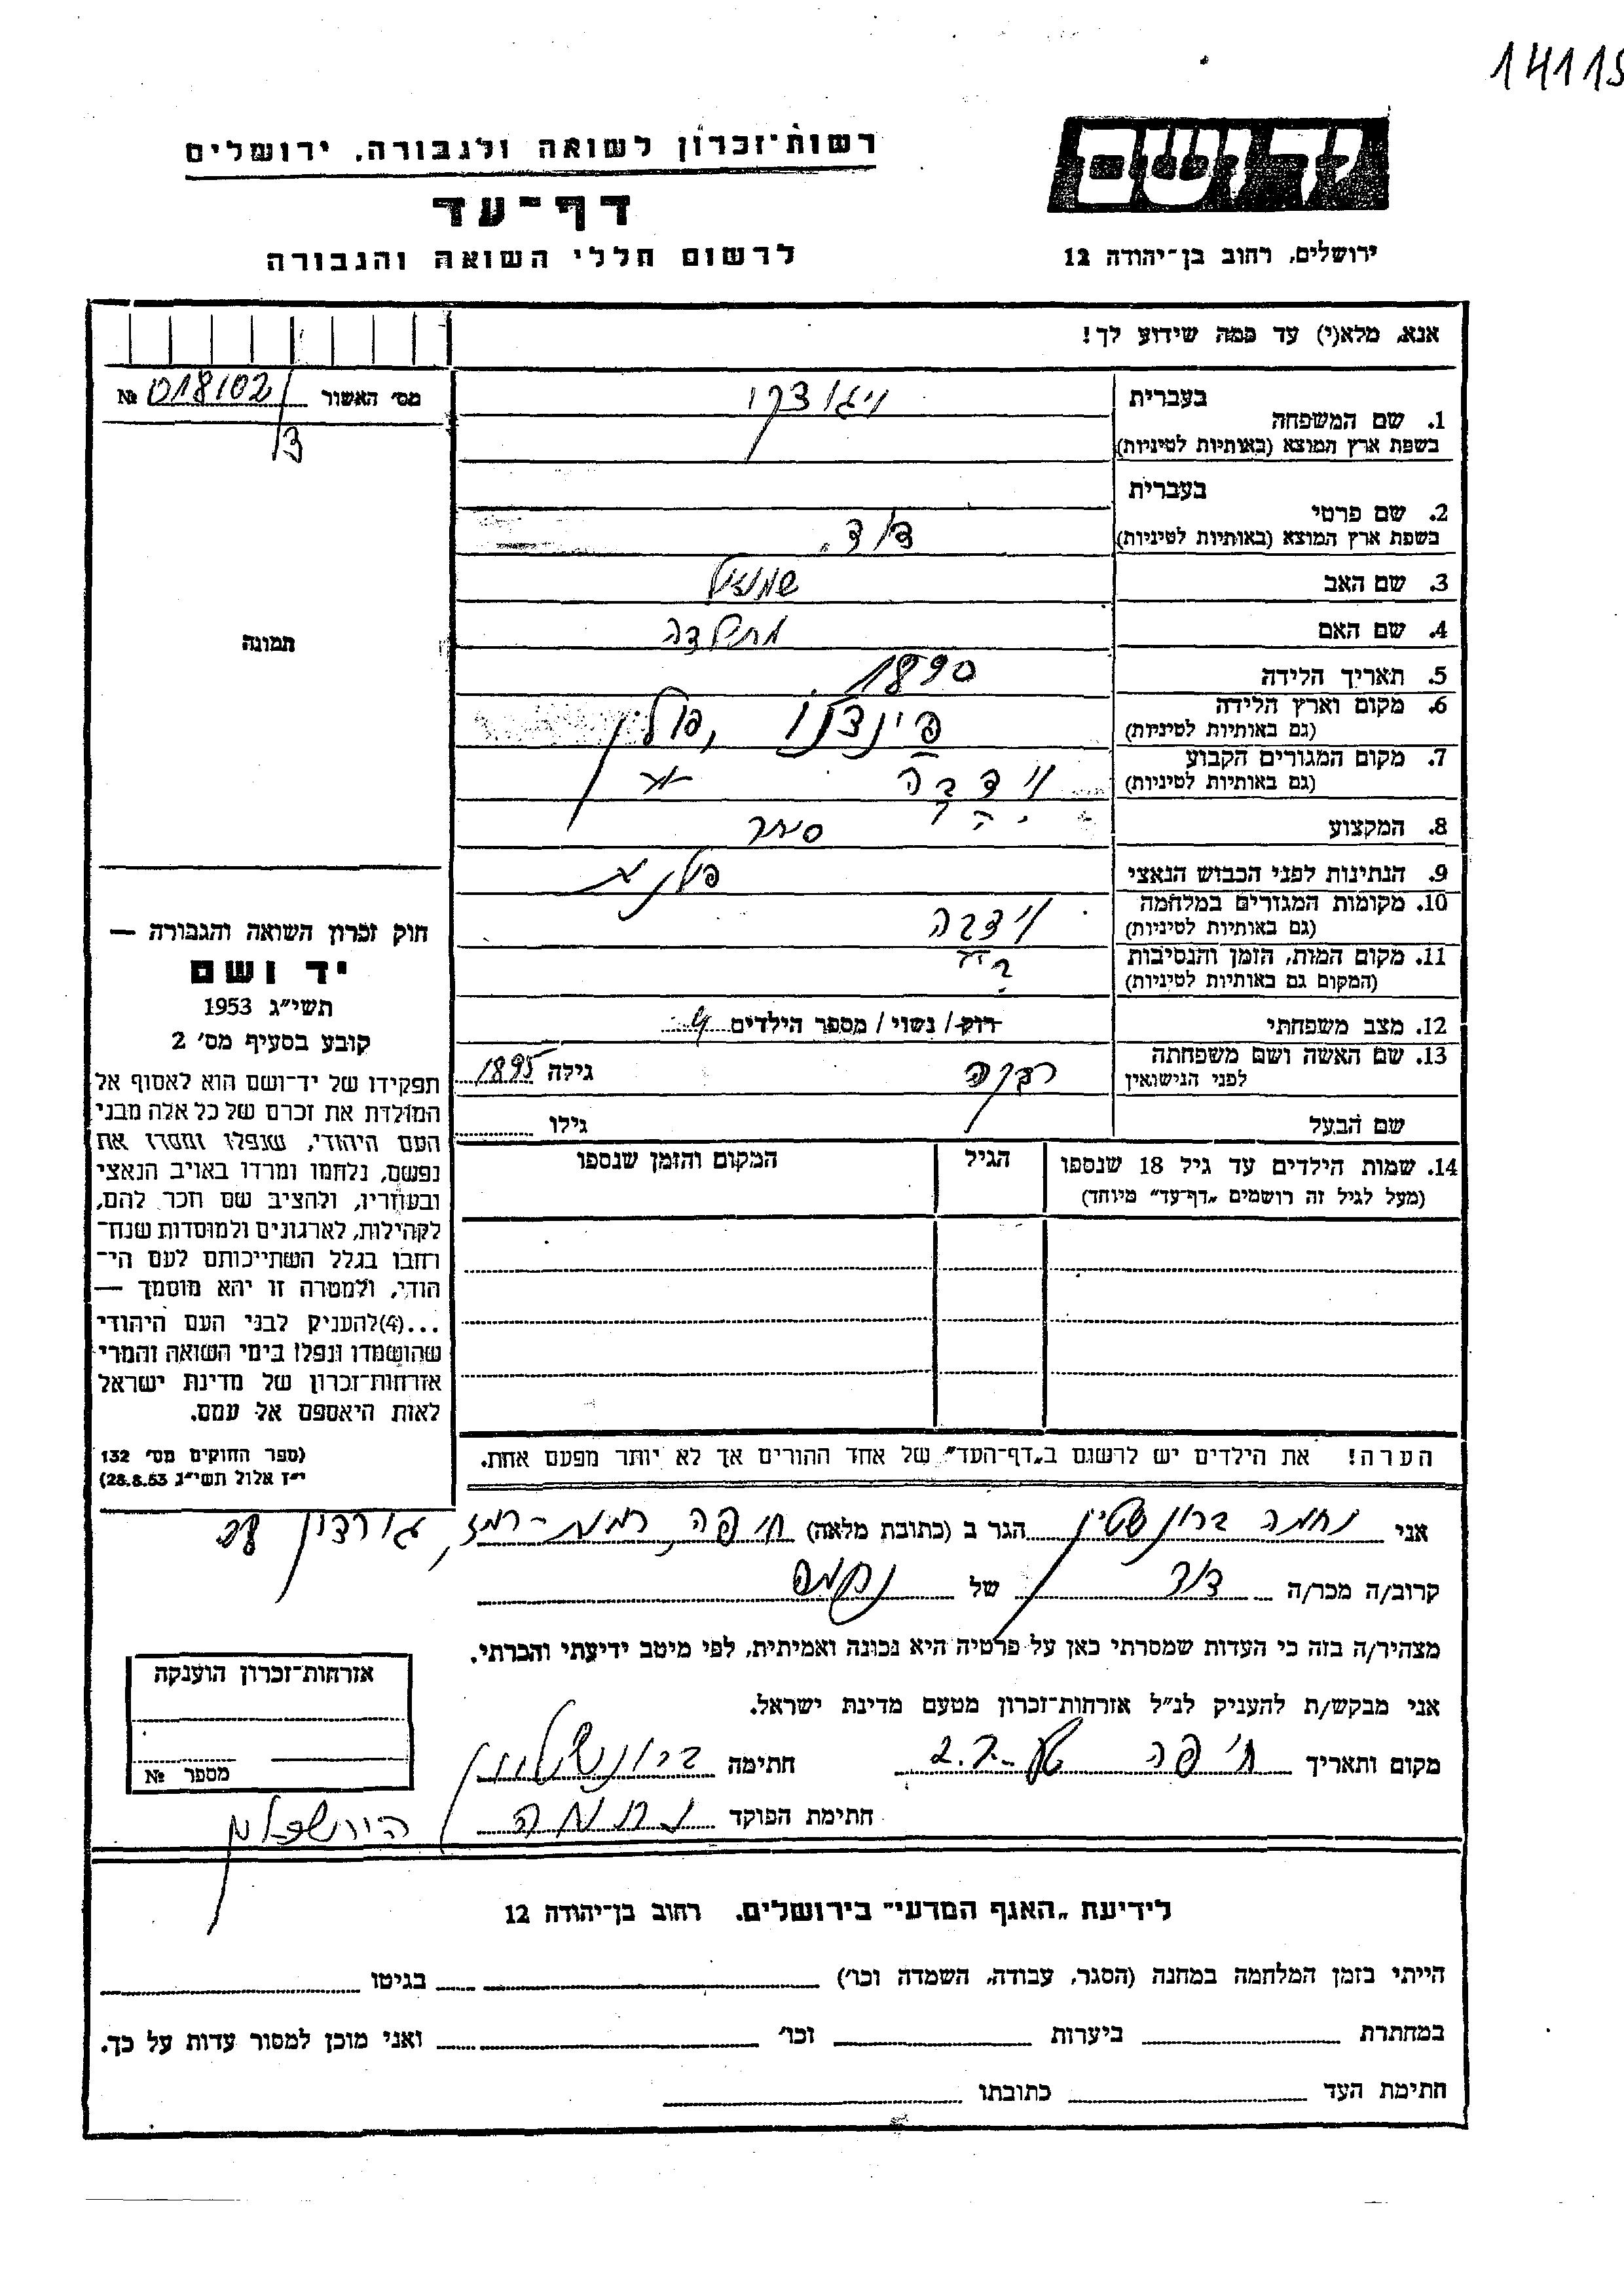 14115
רשות־זכרון לשואה ולגבורה, ירושלים
יד ושם
דף־עד
לרשום חללי השואה והגבורה
ירושלים, רחוב בן־יהודה 12
אנא, מלא(י) עד כמה שידוע לך!
מס׳ האשור 018102 №
1. שם המשפחה
בעברית
בשפת ארץ המוצא (באותיות לטיניות)
2. שם פרטי
בעברית
בשפת ארץ המוצא (באותיות לטיניות)
דוד
3. שם האב שמואל
4. שם האם
5. תאריך הלידה 1890
6. מקום וארץ הלידה
(גם באותיות לטיניות)
, פולין
7. מקום המגורים הקבוע
(גם באותיות לטיניות)
8. המקצוע סוחר
9. הנתינות לפני הכבוש הנאצי
10. מקומות המגורים במלחמה
(גם באותיות לטיניות)
11. מקום המות, הזמן והנסיבות
(המקום גם באותיות לטיניות)
12. מצב משפחתי רווק / נשוי / מספר הילדים 4
13. שם האשה ושם משפחתה
לפני הנישואין
רבקה גילה 1895
שם הבעל גילו
14. שמות הילדים עד גיל 18 שנספו
(מעל לגיל זה רושמים „דף־עד״ מיוחד)
הגיל
המקום והזמן שנספו
הערה! את הילדים יש לרשום ב„דף־העד״ של אחד ההורים אך לא יותר מפעם אחת.
תמונה
חוק זכרון השואה והגבורה —
יד ושם
תשי״ג 1953
קובע בסעיף מס׳ 2
תפקידו של יד־ושם הוא לאסוף אל
המולדת את זכרם של כל אלה מבני
העם היהודי, שנפלו ומסרו את
נפשם, נלחמו ומרדו באויב הנאצי
ובעוזריו, ולהציב שם וזכר להם,
לקהילות, לארגונים ולמוסדות שנח־
רחבו בגלל השתייכותם לעם הי־
הודי, ולמטרה זו יהא מוסמך —
...(4)להעניק לבני העם היהודי
שהושמדו ונפלו בימי השואה והמרי
אזרחות־זכרון של מדינת ישראל
לאות היאספם אל עמם.
(ספר החוקים מס׳ 132
י״ז אלול תשי״ג 28.8.53)
אני נחמה ברונשטיין הגר ב (כתובת מלאה) חיפה, רמת-רמז, גורדון
קרוב/ה מכר/ה דוד של
מצהיר/ה בזה כי העדות שמסרתי כאן על פרטיה היא נכונה ואמיתית, לפי מיטב ידיעתי והכרתי.
אני מבקש/ת להעניק לנ״ל אזרחות־זכרון מטעם מדינת ישראל.
מקום ותאריך חיפה חתימה ברונשטיין
חתימת הפוקד נחמה
אזרחות־זכרון הוענקה
מספר №
לידיעת „האגף המדעי״ בירושלים, רחוב בן־יהודה 12
הייתי בזמן המלחמה במחנה (הסגר, עבודה, השמדה וכו׳) בגיטו
במחתרת ביערות וכו׳ ואני מוכן למסור עדות על כך.
חתימת העד כתובתו